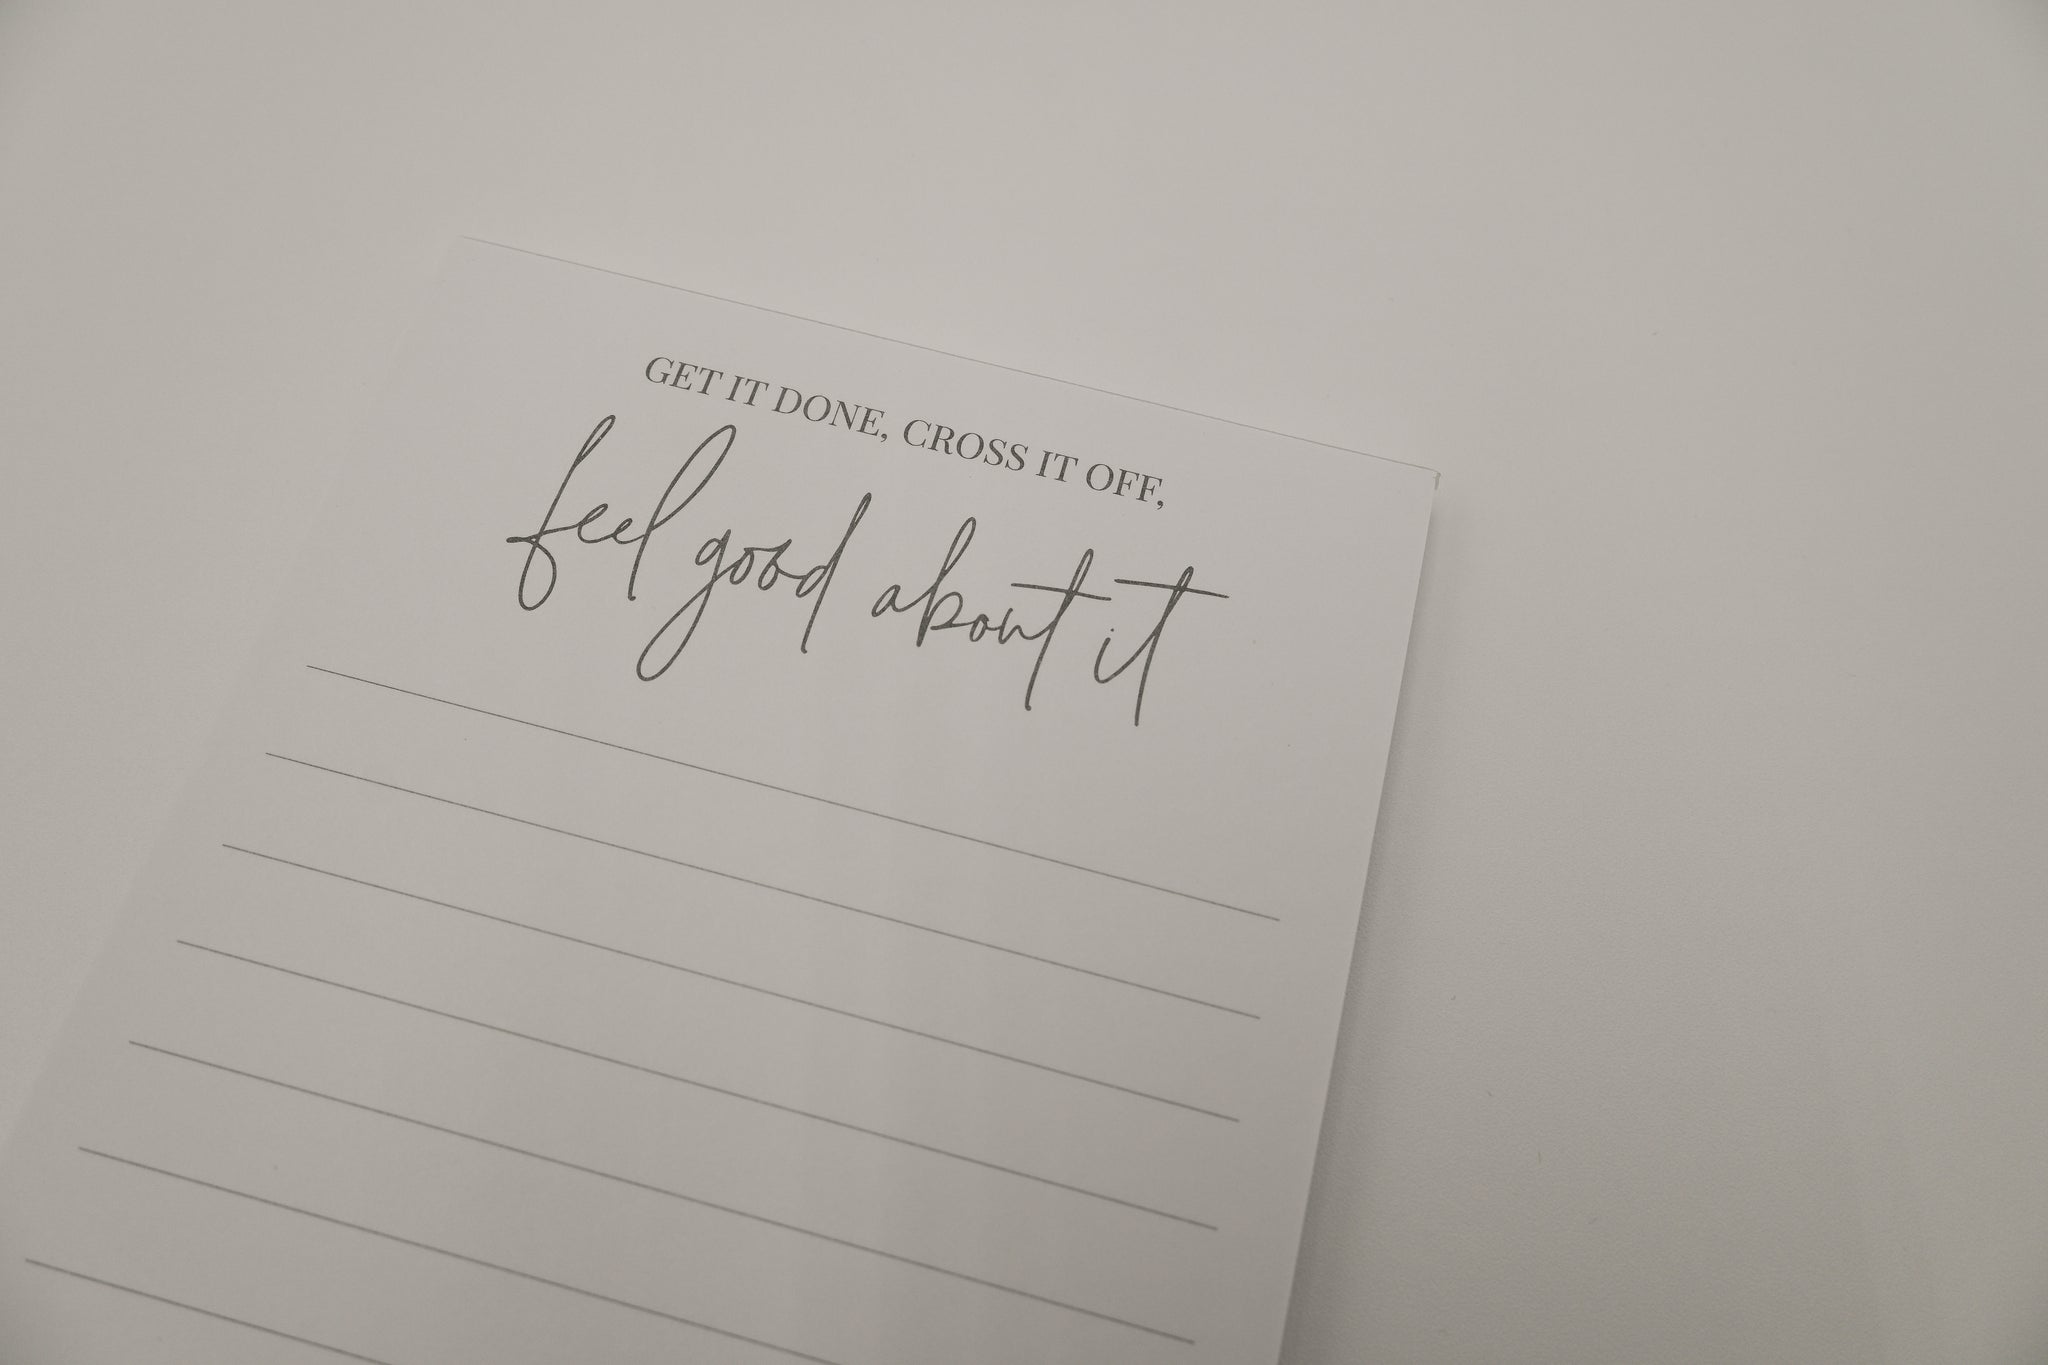 GET IT DONE, CROSS IT OFF,
feel good about it